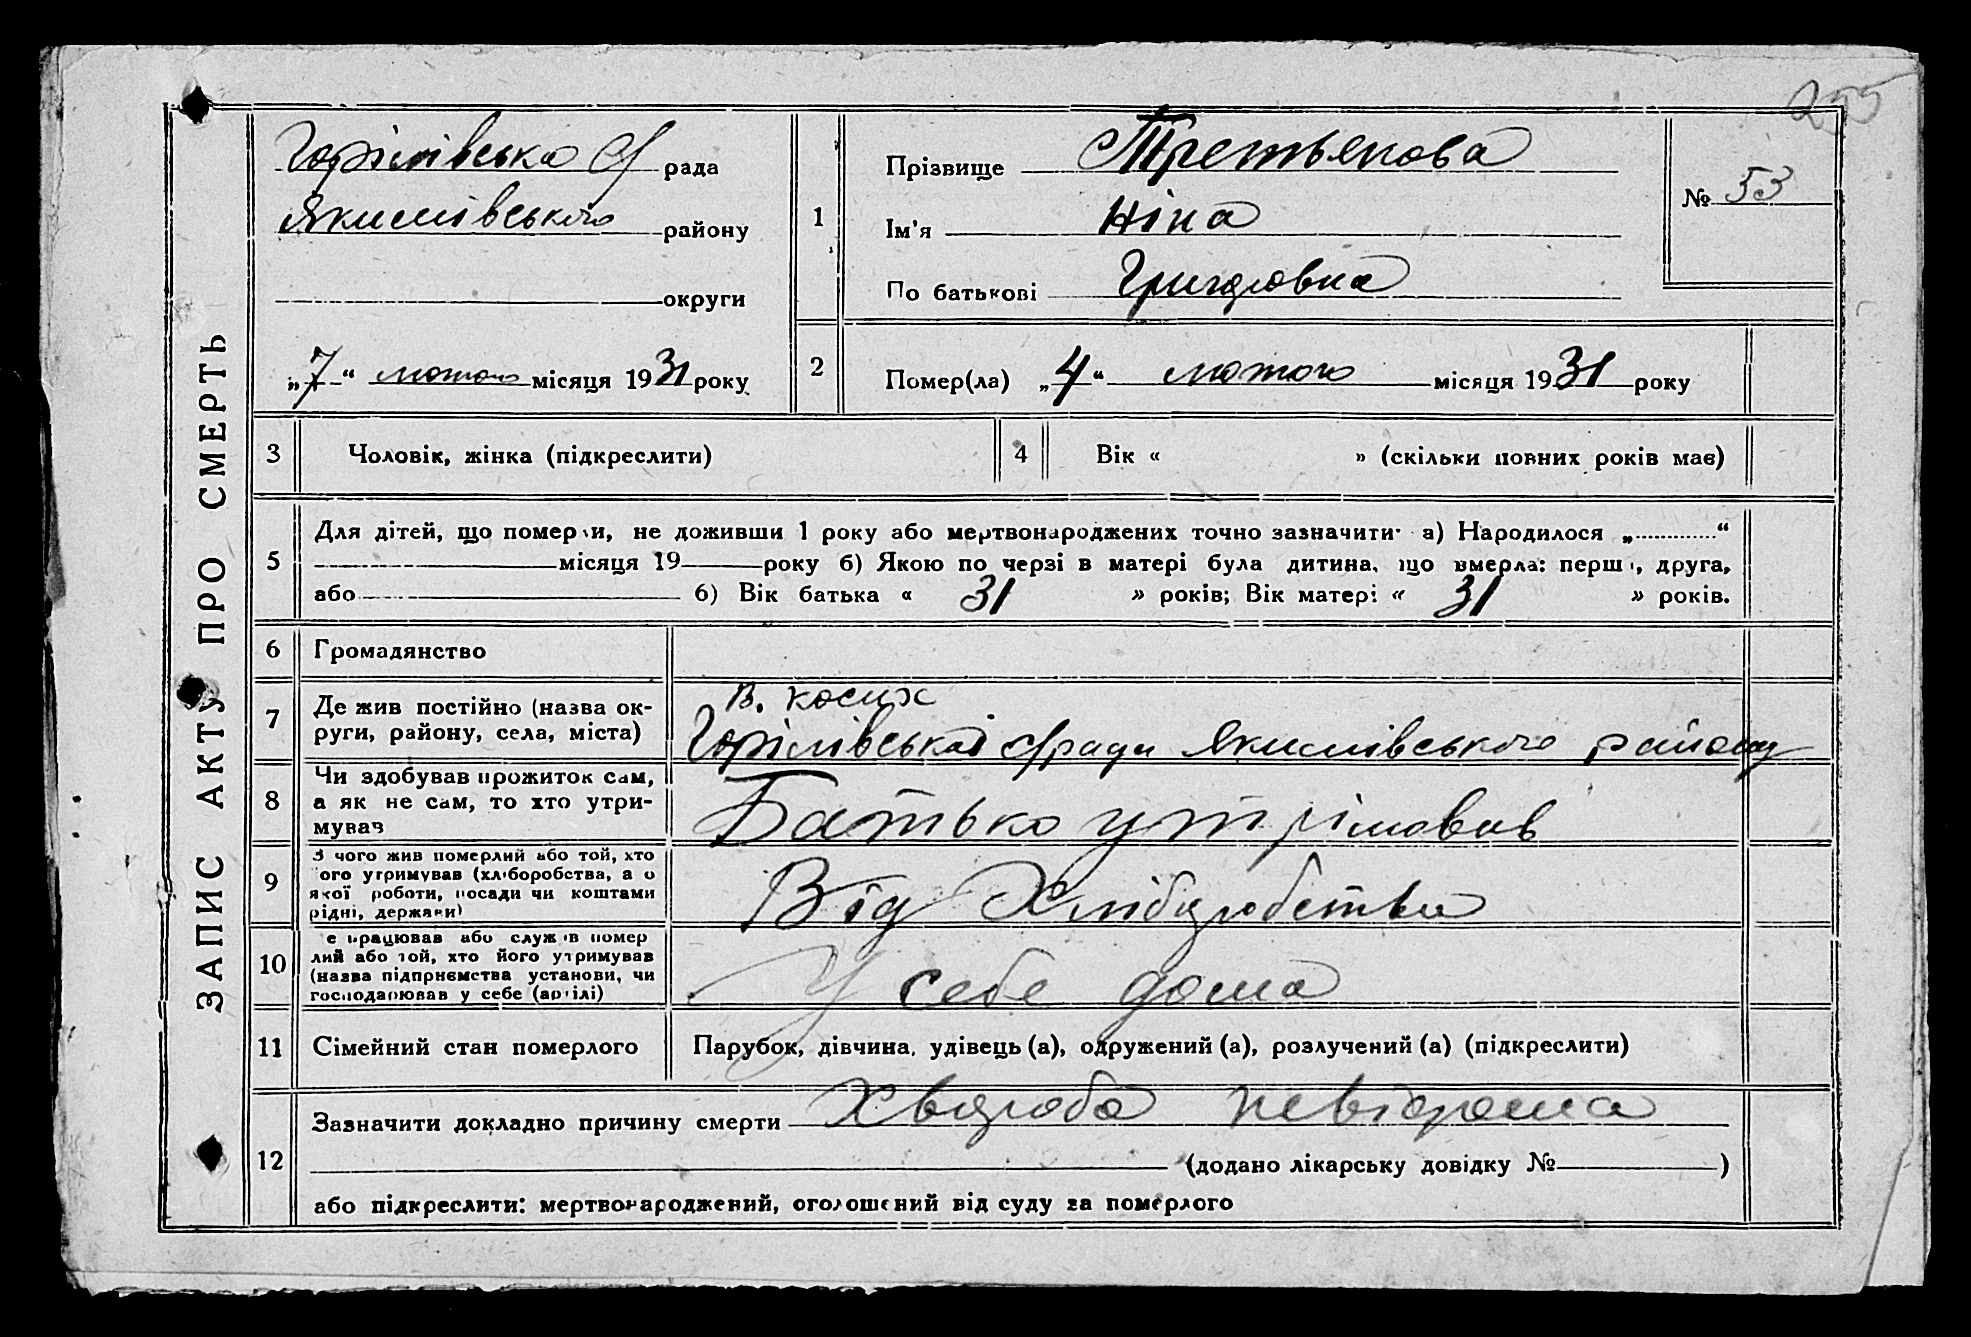 255
ЗАПИС АКТУ ПРО СМЕРТЬ
Горілівська С/ рада
Якимівського району
округи
„7“ лютого місяця 1931 року
1
Прізвище Третьякова
Ім'я Ніна
По батькові Григоровна
№ 53
2
Помер(ла) „4“ лютого місяця 1931 року
3 Чоловік, жінка (підкреслити) 4 Вік « » (скільки повних років має)
5
Для дітей, що померли, не доживши 1 року або мертвонароджених точно зазначити: а) Народилося „ “
місяця 19 року б) Якою по черзі в матері була дитина, що вмерла: перша, друга,
або б) Вік батька « 31 » років; Вік матері « 31 » років.
6 Громадянство
7 Де жив постійно (назва ок-
руги, району, села, міста)
в. косих
Горілівської С/ради Якимівського району
8 Чи здобував прожиток сам,
а як не сам, то хто утри-
мував
Батько утрімовав
9 З чого жив померлий або той, хто
ого утримував (хліборобства, а о
якої роботи, посади чи коштами
рідні, держави)
Від Хліборобства
10 е працював або служив помер
лий або той, хто його утримував
(назва підприємства установи, чи
господарював у себе (артілі)
У себе дома
11 Сімейний стан померлого Парубок, дівчина, удівець (а), одружений (а), розлучений (а) (підкреслити)
12
Зазначити докладно причину смерти Хвороба невідома
(додано лікарську довідку № )
або підкреслити: мертвонароджений, оголошений від суду за померлого